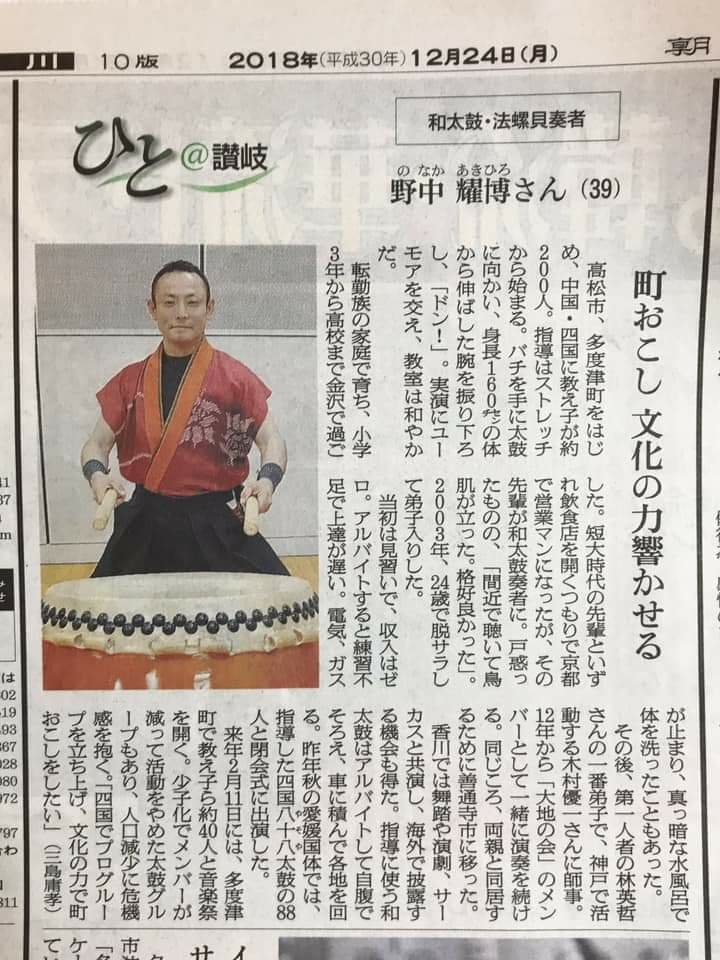 川 10版 2018年(平成30年)12月24日(月) 朝
ひと@讃岐
和太鼓・法螺貝奏者
の なか あきひろ
野中 耀博さん (39)
町おこし 文化の力響かせる
高松市、多度津町をはじ
め、中国・四国に教え子が約
200人。指導はストレッチ
から始まる。バチを手に太鼓
に向かい、身長160㌢の体
から伸ばした腕を振り下ろ
し、「ドン!」。実演にユー
モアを交え、教室は和やか
だ。
転勤族の家庭で育ち、小学
3年から高校まで金沢で過ご
した。短大時代の先輩といず
れ飲食店を開くつもりで京都
で営業マンになったが、その
先輩が和太鼓奏者に。戸惑っ
たものの、「間近で聴いて鳥
肌が立った。格好良かった」。
2003年、24歳で脱サラし
て弟子入りした。
当初は見習いで、収入はゼ
ロ。アルバイトすると練習不
足で上達が遅い。電気、ガス
が止まり、真っ暗な水風呂で
体を洗ったこともあった。
その後、第一人者の林英哲
さんの一番弟子で、神戸で活
動する木村優一さんに師事。
12年から「大地の会」のメン
バーとして一緒に演奏を続け
る。同じころ、両親と同居す
るために善通寺市に移った。
香川では舞踏や演劇、サー
カスと共演し、海外で披露す
る機会も得た。指導に使う和
太鼓はアルバイトして自腹で
そろえ、車に積んで各地を回
る。昨年秋の愛媛国体では、
指導した四国八十八太鼓の88
やそや
人と閉会式に出演した。
来年2月11日には、多度津
町で教え子ら約40人と音楽祭
を開く。少子化でメンバーが
減って活動をやめた太鼓グル
ープもあり、人口減少に危機
感を抱く。「四国でプログルー
プを立ち上げ、文化の力で町
おこしをしたい」(三島庸孝)